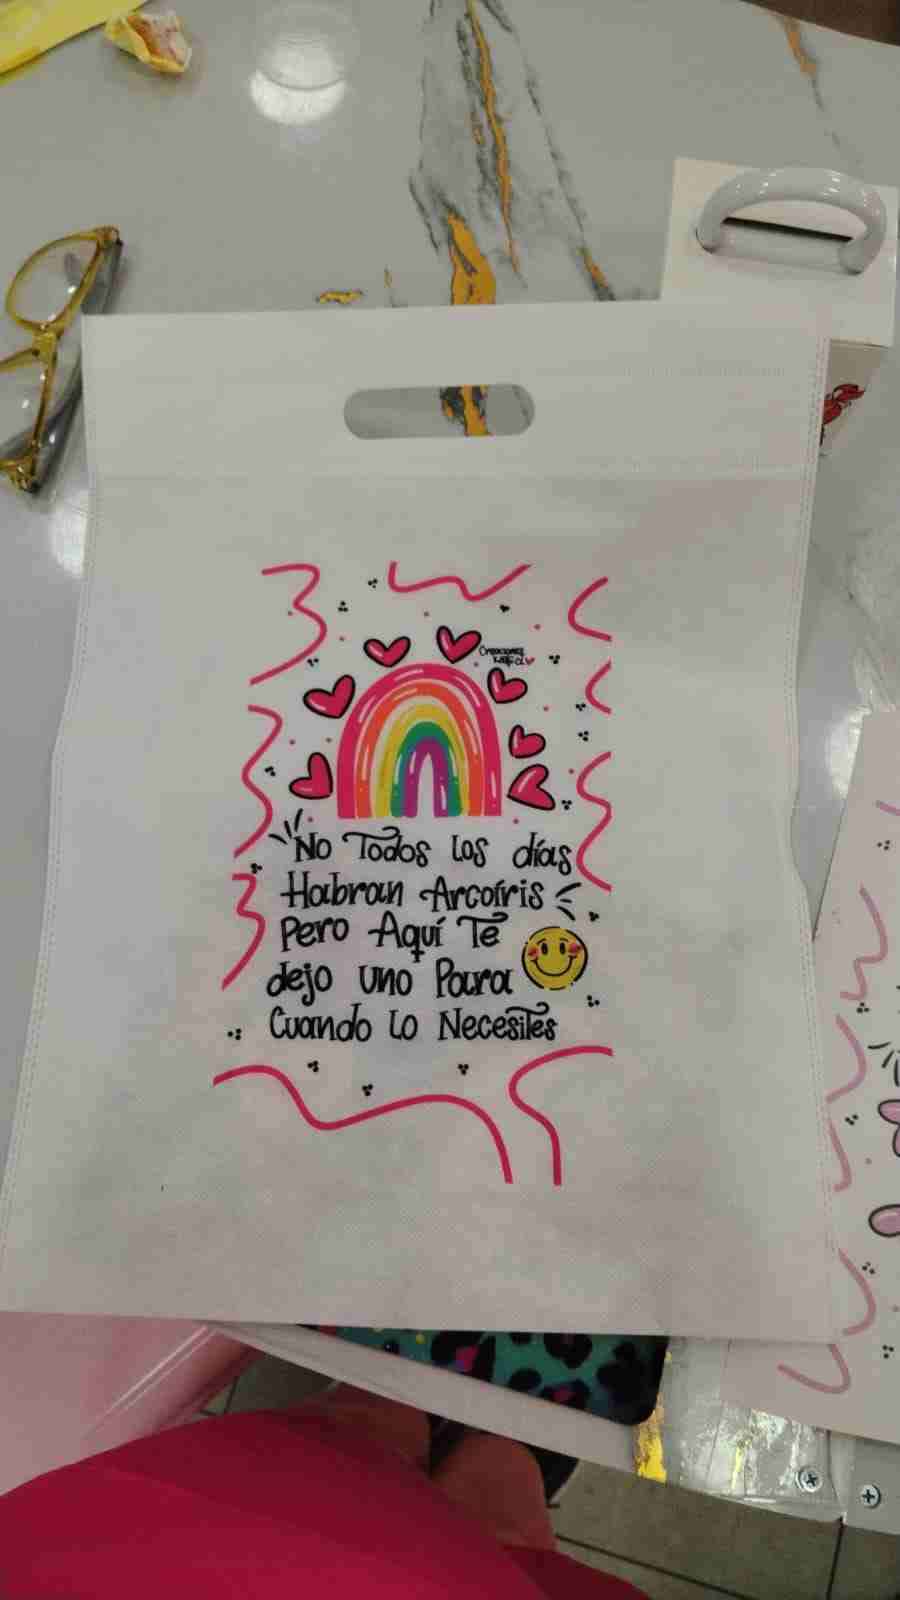 Creaciones
No Todos Los días
Habran Arcoíris
Pero Aquí Te
dejo uno Para
Cuando Lo Necesites